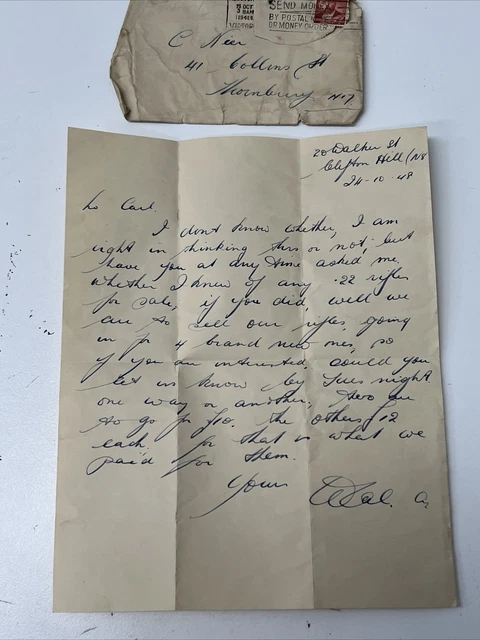 25 OCT
3 30AM
1948
SEND MONEY
BY POSTAL N
OR MONEY ORDER
C Neer
41 Collins St
Thornbury N.17
20 Walker St
Clifton Hill (N8
24-10-48
to Carl.
I don't know whether, I am
right in thinking this or not, but
have you at any time asked me
whether I knew of any .22 rifles
for sale, if you did, well we
are to sell our rifles, going
in for 4 brand new ones, so
if you are interested, could you
let us know by Tues night
one way or another, two are
to go for £10. the others £12
each for that is what we
paid for them.
Yours